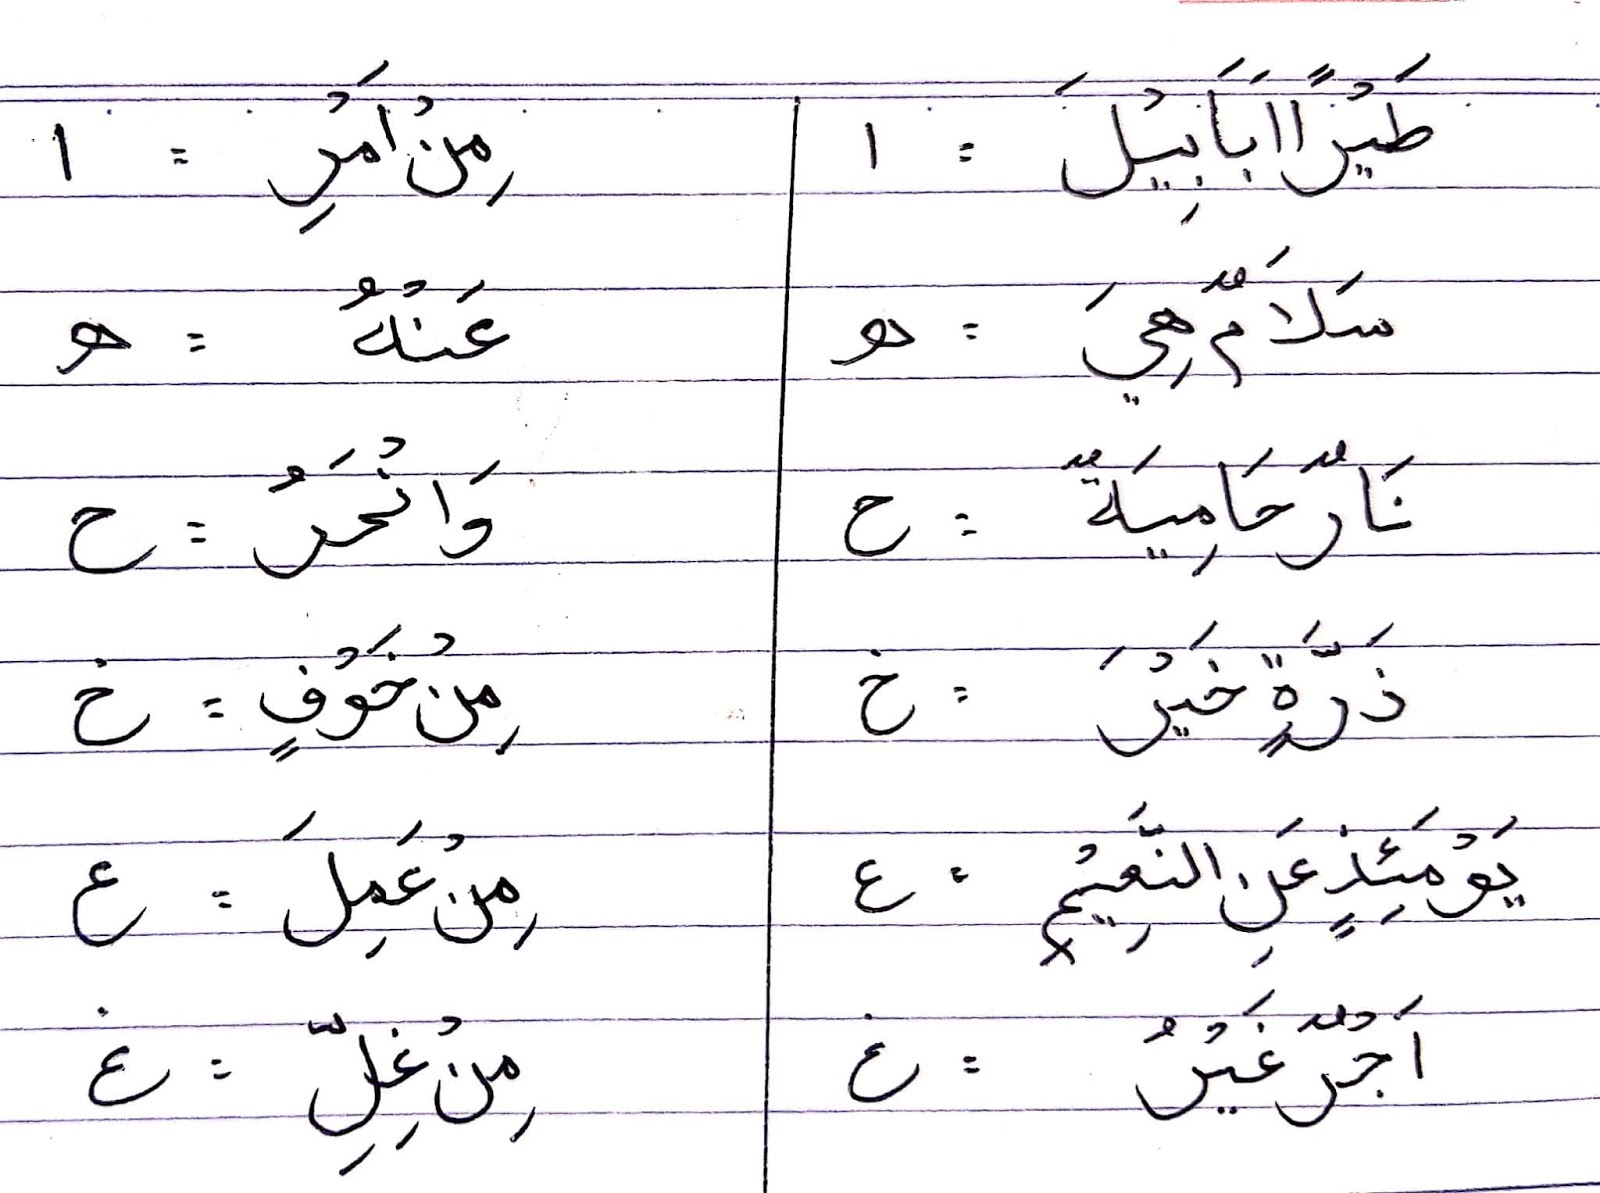 طَيْرًا اَبَابِيْلَ = ا    مِنْ اَمْرِ = ا
سَلَامٌ هِيَ = ه    عَنْهُ = ه
نَارٌ حَامِيَةٌ = ح    وَانْحَرْ = ح
ذَرَّةٍ خَيْرَ = خ    مِنْ خَوْفٍ = خ
يَوْمَئِذٍ عَنِ النَّعِيْمِ = ع    مِنْ عَمِلَ = ع
اَجْرٌ غَيْرُ = غ    مِنْ غِلِّ = غ